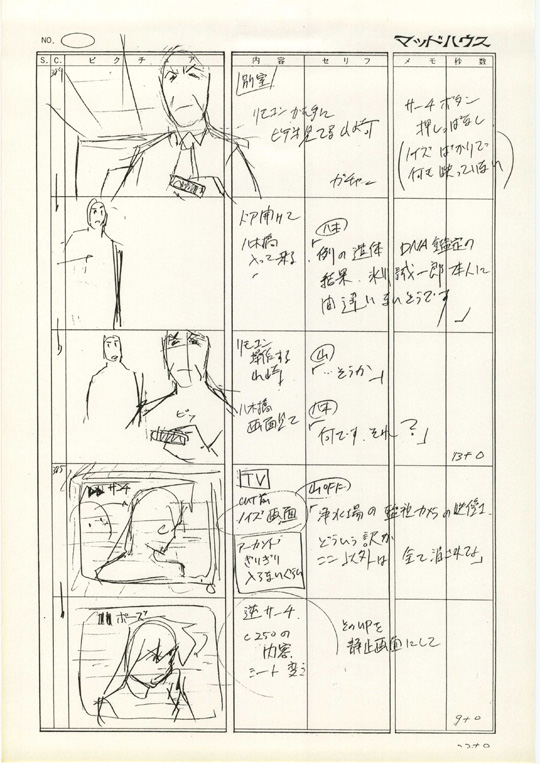 NO.
マッドハウス
S. C. ピクチュア 内容 セリフ メモ 秒数
別室
リモコン
ビデオ見てる
ガチャー
サーチボタン
押しっぱなし
(ノイズばかりで
何も映っていない)
ドア開けて
八木橋
入って来る
八木
「例の遺体 DNA鑑定の
結果、氷川誠一郎本人に
間違いないそうです」
リモコン
操作する
ピッ
山
「…そうか」
八木橋
画面見て
八木
「何です、それ?」
13+0
サーチ
TV
CUT前
ノイズ画面
ぎりぎり
入らないくらい
山OFF
「浄水場の監視カメラの映像さ
どういう訳か
ここ以外は 全て消されてる」
ポーズ
逆サーチ
C250の
内容
シート変う
そのUPを
静止画面にして
9+0